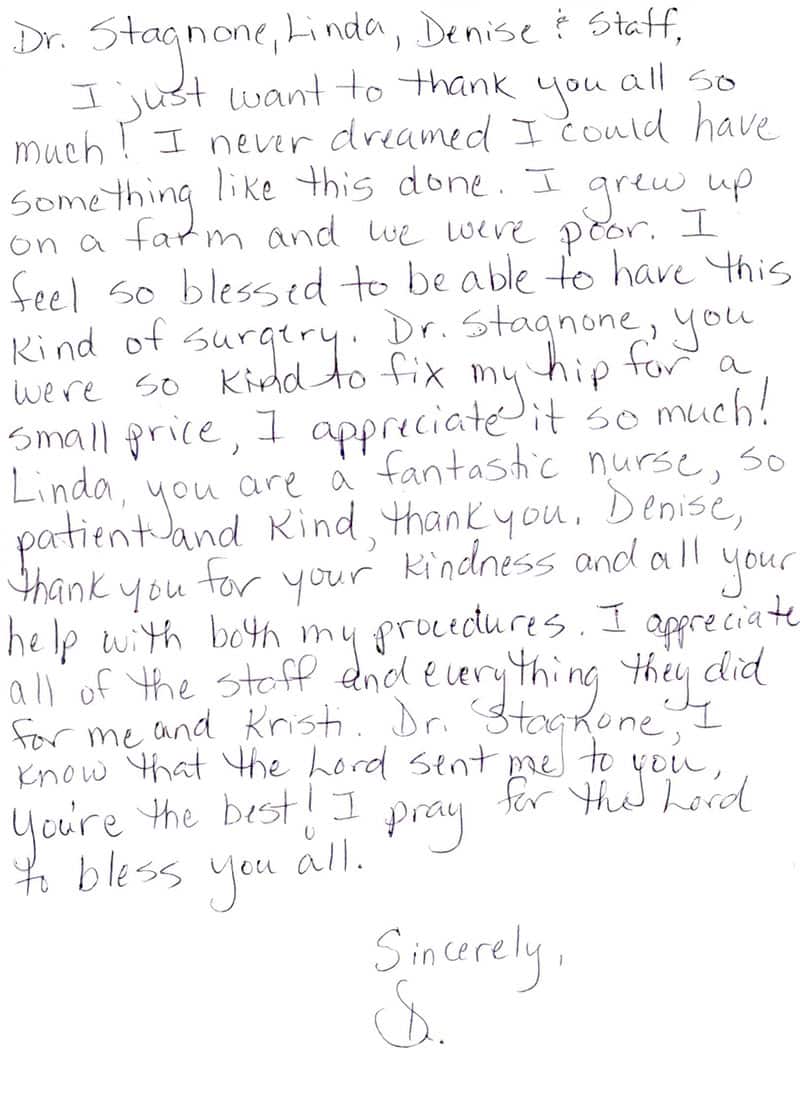 Dr. Stagnone, Linda, Denise & Staff,
I just want to thank you all so
much! I never dreamed I could have
something like this done. I grew up
on a farm and we were poor. I
feel so blessed to be able to have this
kind of surgery. Dr. Stagnone, you
were so kind to fix my hip for a
small price, I appreciate it so much!
Linda, you are a fantastic nurse, so
patient and kind, thank you. Denise,
thank you for your kindness and all your
help with both my procedures. I appreciate
all of the staff and everything they did
for me and Kristi. Dr. Stagnone, I
know that the Lord sent me to you,
you're the best! I pray for the Lord
to bless you all.
Sincerely,
D.